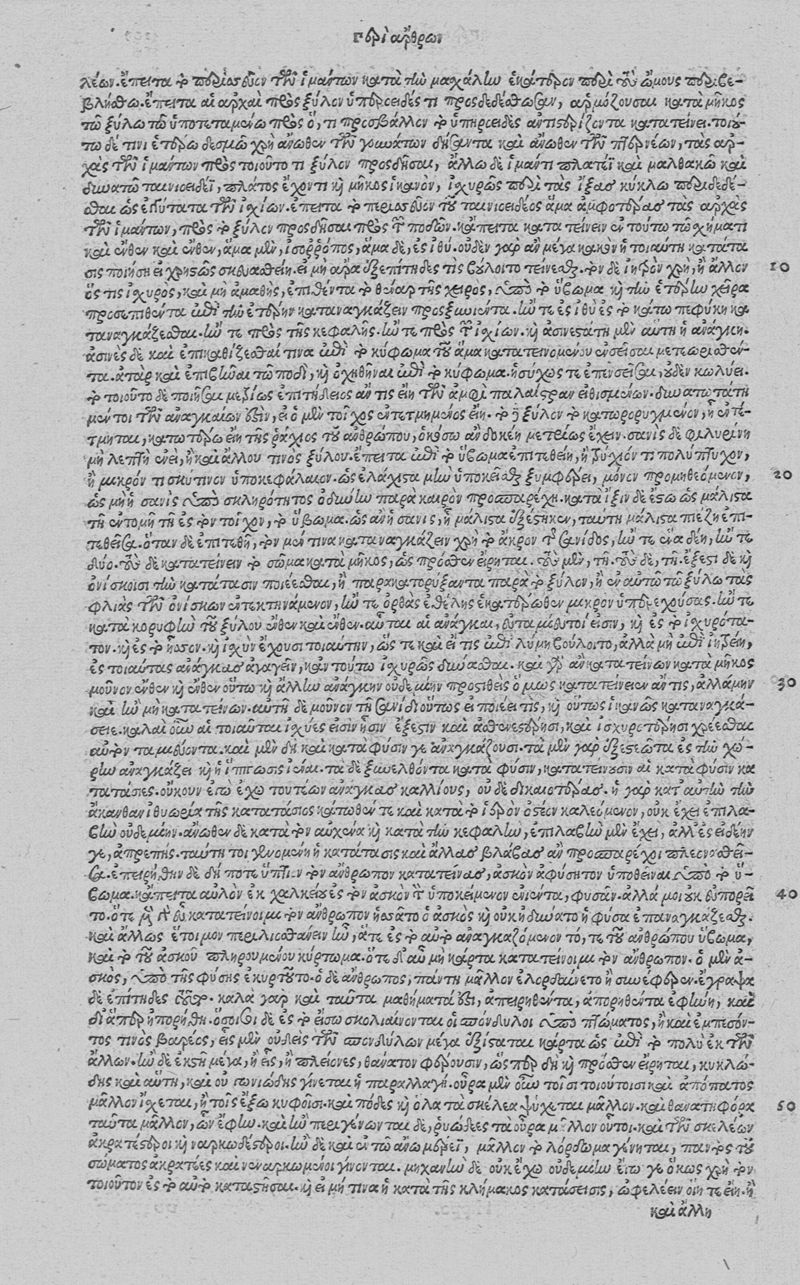 περὶ ἄρθρων
λέων. ἔπειτα τὸ περισσεῦον τῶν ἱμάντων κατὰ τὴν μασχάλην ἑκάτερον περὶ τοὺς ὤμους περιβε-
βλήσθω. ἔπειτα αἱ ἀρχαὶ πρὸς ξύλον ὑπεροειδές τι προσδεδέσθωσαν, ἁρμόζουσαι κατὰ μῆκος
τῷ ξύλῳ τῷ ὑποτεταμένῳ πρὸς ὅ, τι προσβάλλον τὸ ὑπηροειδὲς ἀντιστηρίζοντα κατατείνειν. τοιού-
τῳ δέ τινι ἑτέρῳ δεσμῷ χρὴ ἄνωθεν τῶν γουνάτων δήσαντα καὶ ἄνωθεν τῶν πτερνέων, τὰς ἀρ-
χὰς τῶν ἱμάντων πρὸς τοιοῦτό τι ξύλον προσδῆσαι, ἄλλῳ δὲ ἱμάντι πλατεῖ καὶ μαλθακῷ καὶ
δυνατῷ ταινιοειδεῖ, πλάτος ἔχοντι καὶ μῆκος ἱκανὸν, ἰσχυρῶς περὶ τὰς ἰξύας κύκλῳ περιδεδέ-
σθαι ὡς ἐγγύτατα τῶν ἰσχίων. ἔπειτα τὸ περισσεῦον τοῦ ταινιοειδέος ἅμα ἀμφοτέρας τὰς ἀρχὰς
τῶν ἱμάντων, πρὸς τὸ ξύλον προσδῆσαι πρὸς τῶν ποδῶν. κἄπειτα κατατείνειν ἐν τούτῳ τῷ σχήματι
καὶ ἔνθεν καὶ ἔνθεν, ἅμα μὲν, ἰσορρόπως, ἅμα δὲ, ἐς ἰθύ. οὐδὲν γὰρ ἂν μέγα κακὸν ἡ τοιαύτη κατάτα
σις ποιήσῃ εἰ χρηστῶς σκευασθείη. εἰ μὴ ἄρα ἐξεπίτηδές τις βούλοιτο σίνεσθαι. τὸν δὲ ἰητρὸν χρὴ, ἢ ἄλλον
ὅς τις ἰσχυρὸς, καὶ μὴ ἀμαθὴς, ἐπιθέντα τὸ θέναρ τῆς χειρὸς, ἐπὶ τὸ ὕβωμα καὶ τὴν ἑτέρην χεῖρα
προσεπιθέντα ἐπὶ τὴν ἑτέρην καταναγκάζειν προσξυνιέντα. ἤν τε ἐς ἰθὺ ἐς τὸ κάτω πεφύκῃ κα
ταναγκάζεσθαι. ἤν τε πρὸς τῆς κεφαλῆς. ἤν τε πρὸς τῶν ἰσχίων. καὶ ἀσινεστάτη μὲν αὕτη ἡ ἀνάγκη.
ἀσινὲς δὲ καὶ ἐπικαθίζεσθαί τινα ἐπὶ τὸ κύφωμα τοῦ ἅμα κατατεινομένου ἐνσεῖσαι μετεωρισθέν-
τα. ἀτὰρ καὶ ἐπιβῆναι τῷ ποδὶ, καὶ ὀχηθῆναι ἐπὶ τὸ κύφωμα. ἡσύχως τε ἐπενσεῖσαι, οὐδὲν κωλύει.
τὸ τοιοῦτο δὲ ποιῆσαι μετρίως ἐπιτήδειος ἄν τις εἴη τῶν ἀμφὶ παλαίστραν εἰθισμένων. δυνατωτάτη
μέντοι τῶν ἀναγκαίων ἐστὶν, εἰ ὁ μὲν τοῖχος ἐντετμημένος εἴη. τὸ δὲ ξύλον τὸ κατωρορυγμένον, ᾗ ἐντέ-
τμηται, κατωτέρω εἴη τῆς ῥάχιος τοῦ ἀνθρώπου, ὁκόσῳ ἂν δοκέῃ μετρίως ἔχειν. σανὶς δὲ φιλυρίνη
μὴ λεπτὴ ἐνείη, ἢ καὶ ἄλλου τινὸς ξύλου. ἔπειτα ἐπὶ τὸ ὕβωμα ἐπιτεθείη, ἢ τρύχιόν τι πολύπτυχον,
ἢ μικρόν τι σκύτινον ὑποκεφάλαιον. ὡς ἐλάχιστα μὴν ὑποκεῖσθαι ξυμφέρει, μόνον προμηθεόμενον,
ὡς μὴ ἡ σανὶς ὑπὸ σκληρότητος ὀδύνην παρὰ καιρὸν προσπαρέχῃ. κατ᾽ ἴξιν δὲ ἔστω ὡς μάλιστα
τῇ ἐντομῇ τῇ ἐς τὸν τοῖχον, τὸ ὕβωμα. ὡς ἂν ἡ σανὶς, ᾗ μάλιστα ἐξέστηκεν, ταύτῃ μάλιστα πιέζῃ ἐπι-
τεθεῖσα. ὅταν δὲ ἐπιτεθῇ, τὸν μέν τινα καταναγκάζειν χρὴ τὸ ἄκρον τῆς σανίδος, ἤν τε ἕνα δέῃ, ἤν τε
δύο. τοὺς δὲ κατατείνειν τὸ σῶμα κατὰ μῆκος, ὡς πρόσθεν εἴρηται. τοὺς μὲν, τῇ. τοὺς δὲ, τῇ. ἔξεστι δὲ καὶ
ὀνίσκοισι τὴν κατάτασιν ποιέεσθαι, ἢ παρακατορύξαντα παρὰ τὸ ξύλον, ἢ ἐν αὐτῷ τῷ ξύλῳ τὰς
φλιὰς τῶν ὀνίσκων ἐντεκτηνάμενον, ἤν τε ὀρθὰς ἐθέλῃς ἑκατέρωθεν μικρὸν ὑπερεχούσας. ἤν τε
κατὰ κορυφὴν τοῦ ξύλου ἔνθεν καὶ ἔνθεν. αὗται αἱ ἀνάγκαι, εὐταμίευτοί εἰσιν, καὶ ἐς τὸ ἰσχυρότα-
τον. καὶ ἐς τὸ ἧσσον. καὶ ἰσχὺν ἔχουσι τοιαύτην, ὥς τε καὶ εἴ τις ἐπὶ λύμῃ βούλοιτο, ἀλλὰ μὴ ἐπὶ ἰητρείῃ,
ἐς τοιαύτας ἀνάγκας ἀγαγεῖν, κἂν τούτῳ ἰσχυρῶς δύνασθαι. καὶ γὰρ ἂν κατατείνων κατὰ μῆκος
μοῦνον ἔνθεν καὶ ἔνθεν οὕτω καὶ ἄλλην ἀνάγκην οὐδεμίην προστιθεὶς ὅμως κατατείνειεν ἄν τις, ἀλλὰ μὴν
καὶ ἢν μὴ κατατείνων. αὐτῇ δὲ μοῦνον τῇ σανίδι οὕτως εἰ ποιέει τις, καὶ οὕτως ἱκανῶς καταναγκά-
σειε. καλαὶ οὖν αἱ τοιαῦται ἰσχύες εἰσὶν ᾗσιν ἔξεστιν καὶ ἀσθενεστέρῃσι, καὶ ἰσχυροτέρῃσι χρέεσθαι
αὐτὸν ταμιεύοντα. καὶ μὲν δὴ καὶ κατὰ φύσιν γε ἀναγκάζουσι. τὰ μὲν γὰρ ἐξεστεῶτα ἐς τὴν χώ-
ρην ἀναγκάζει καὶ ἡ ἴπωσις ἰέναι. τὰ δὲ ξυνελθόντα κατὰ φύσιν, κατατείνουσιν αἱ κατὰ φύσιν κα
τατάσιες. οὔκουν ἐγὼ ἔχω τουτέων ἀνάγκας καλλίους, οὐδὲ δικαιοτέρας. ἡ γὰρ κατ᾽ αὐτὴν τὴν
ἄκανθαν ἰθυωρία τῆς κατατάσιος κάτωθέν τε καὶ κατὰ τὸ ἱερὸν ὀστέον καλεόμενον, οὐκ ἔχει ἐπιλα-
βὴν οὐδεμίην. ἄνωθεν δὲ κατὰ τὸν αὐχένα καὶ κατὰ τὴν κεφαλὴν, ἐπιλαβὴν μὲν ἔχει, ἀλλ᾽ ἐς εἰδέην
γε, ἀπρεπής. ταύτῃ τοι γινομένη ἡ κατάτασις καὶ ἄλλας βλάβας ἂν προσπαρέχοι πλεονασθεῖ-
σα. ἐπειρήθην δὲ δή ποτε ὕπτιον τὸν ἄνθρωπον κατατείνας, ἀσκὸν ἀφύσητον ὑποθεῖναι ὑπὸ τὸ ὕ-
βωμα. κἄπειτα αὐλὸν ἐκ χαλκείου ἐς τὸν ἀσκὸν τὸν ὑποκείμενον ἐνιέντα, φυσᾶν. ἀλλά μοι οὐκ εὐπορεῖ
το. ὅτε μὲν γὰρ εὖ κατατείνοιμι τὸν ἄνθρωπον ἡσσᾶτο ὁ ἀσκὸς καὶ οὐκ ἠδύνατο ἡ φῦσα ἐπαναγκάζεσθαι.
καὶ ἄλλως ἕτοιμον περιλισθαίνειν ἦν, ἅτε ἐς τὸ αὐτὸ ἀναγκαζόμενον τό, τε τοῦ ἀνθρώπου ὕβωμα,
καὶ τὸ τοῦ ἀσκοῦ πληρουμένου κύρτωμα. ὅτε δ᾽ αὖ μὴ κάρτα κατατείνοιμι τὸν ἄνθρωπον. ὁ μὲν ἀ-
σκὸς, ὑπὸ τῆς φύσης ἐκυρτοῦτο. ὁ δὲ ἄνθρωπος, πάντῃ μᾶλλον ἐλορδαίνετο ἢ συνέφερεν. ἔγραψα
δὲ ἐπίτηδες τοῦτο. καλὰ γὰρ καὶ ταῦτα μαθήματά ἐστι, ἃ πειρηθέντα, ἀπορηθέντα ἐφάνη, καὶ
δι᾽ ἅπερ ἠπορήθη. ὅσοισι δὲ ἐς τὸ εἴσω σκολιαίνονται οἱ σπόνδυλοι ὑπὸ πτώματος, ἢ καὶ ἐμπεσόν-
τος τινὸς βαρέος, εἷς μὲν οὐδεὶς τῶν σπονδύλων μέγα ἐξίσταται κάρτα ὡς ἐπὶ τὸ πολὺ ἐκ τῶν
ἄλλων. ἢν δὲ ἐκστῇ μέγα, ἢ εἷς, ἢ πλείονες, θάνατον φέρουσιν, ὥσπερ δὴ καὶ πρόσθεν εἴρηται, κυκλώ-
δης καὶ αὕτη, καὶ οὐ γωνιώδης γίνεται ἡ παραλλαγή. οὖρα μὲν οὖν τοῖσι τοιούτοισι καὶ ἀπόπατος
μᾶλλον ἵσχεται, ἢ τοῖς ἔξω κυφοῖσι. καὶ πόδες καὶ ὅλα τὰ σκέλεα ψύχεται μᾶλλον. καὶ θανατηφόρα
ταῦτα μᾶλλον, ὧν ἔφην. καὶ ἢν περιγένωνται δὲ, ῥυώδεες τὰ οὖρα μᾶλλον οὗτοι. καὶ τῶν σκελέων
ἀκρατέστεροι καὶ ναρκωδέστεροι. ἢν δὲ καὶ ἐν τῷ ἄνω μέρει, μᾶλλον τὸ λόρδωμα γένηται, παντὸς τοῦ
σώματος ἀκρατέες καὶ νεναρκωμένοι γίνονται. μηχανὴν δὲ οὐκ ἔχω οὐδεμίην ἔγωγε ὅκως χρὴ τὸν
τοιοῦτον ἐς τὸ αὐτὸ καταστῆσαι. καὶ εἰ μή τινα ἡ κατὰ τῆς κλίμακος κατάσεισις, ὠφελέειν οἵη τε εἴη. ἢ
καὶ ἄλλη
10
20
30
40
50